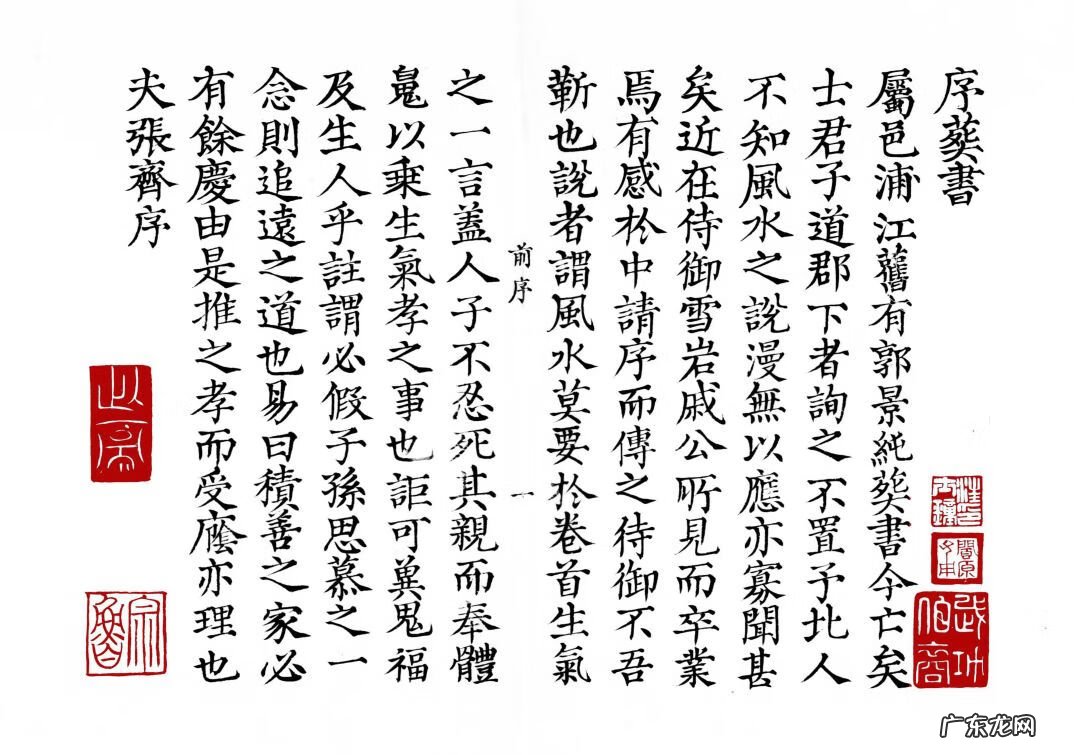 序葬書
屬邑浦江舊有郭景純葬書今亡矣
士君子道郡下者詢之不置予北人
不知風水之說漫無以應亦寡聞甚
矣近在侍御雪岩戚公所見而卒業
焉有感於中請序而傳之待御不吾
靳也說者謂風水莫要於卷首生氣
前序
一
之一言蓋人子不忍死其親而奉體
魄以乘生氣孝之事也詎可冀鬼福
及生人乎註謂必假子孫思慕之一
念則追遠之道也易曰積善之家必
有餘慶由是推之孝而受廕亦理也
夫張齊序
广东龙网